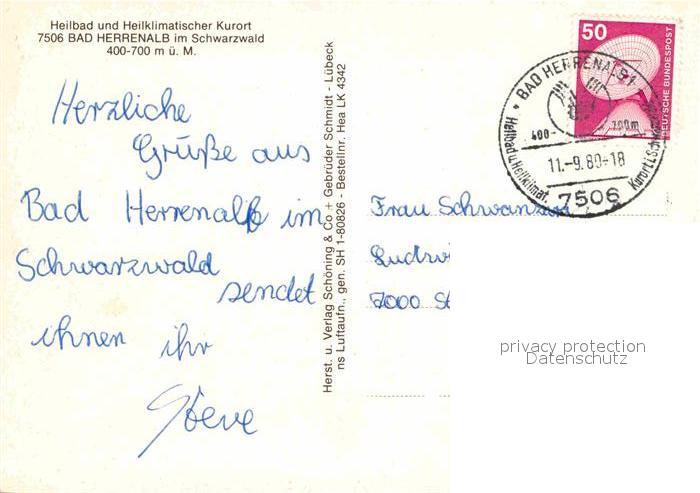 Heilbad und Heilklimatischer Kurort
7506 BAD HERRENALB im Schwarzwald
400-700 m ü. M.
Herzliche
Grüße aus
Bad Herrenalb im
Schwarzwald
sendet
ihnen ihr
Herst. u. Verlag Schöning & Co + Gebrüder Schmidt - Lübeck
ns Luftaufn., gen. SH 1-80826 - Bestellnr. Hea LK 4342
50
DEUTSCHE BUNDESPOST
BAD HERRENALB 1
400-
700m
Heilbad u. Heilklimat.
Kurort i. Schwarzwald
11.-9.80-18
7506
Frau
7000 St
privacy protection
Datenschutz